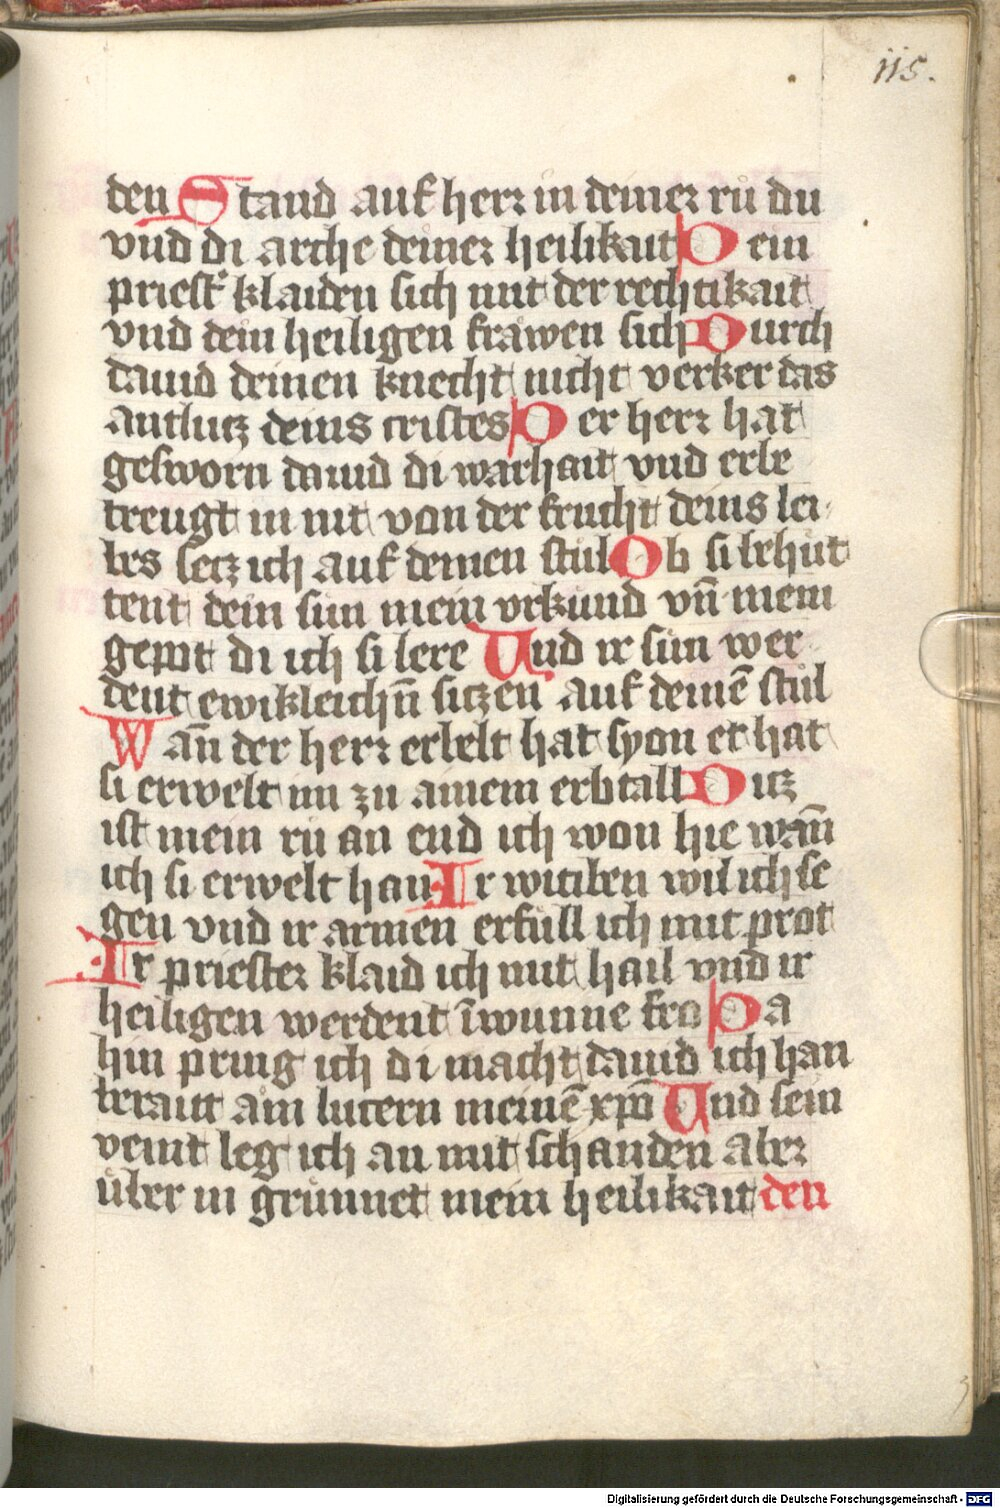 115.
den Stand auf herr in deiner rů du
vnd di arche deiner heilikait Dein
priestˀ klaiden sich mit der rechtikait
vnd dein heiligen fräwen sich Durch
dauid deinen knecht nicht verker das
antlutz deins cristes Der herr hat
gesworn dauid di warhait vnd erbe
treugt in nit von der frucht deins lei
bes secz ich auf deinen stůl Ob si behůt
tent dein sůn mein vrkund vn̄ mein
gepot di ich si lere Und ir sůn wer
dent ewikleich n̄ siczen auf deinē stůl
Wan̄ der herr erbelt hat syon er hat
si erwelt im zu ainem erbtall Ditz
ist mein rů an end ich won hie wan̄
ich si erwelt han Ir witiben wil ich se
gen vnd ir armen erfůll ich mit prot
Ir priester klaid ich mit hail vnd ir
heiligen werdent ī wunne fro Da
hin pring ich di macht dauid ich han
berait ain lucern meinē xpō Und sein
veint leg ich an mit schanden aber
ůber in grůnnet mein heilikait den
Digitalisierung gefördert durch die Deutsche Forschungsgemeinschaft - DFG